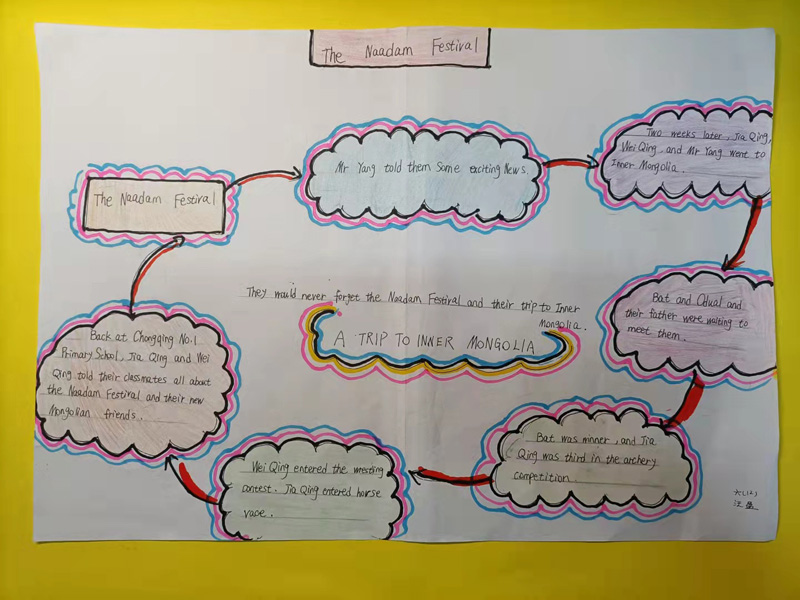 The Naadam Festival
The Naadam Festival
Mr Yang told them Some exciting News.
Two weeks later, Jia Qing,
Wei Qing, and Mr Yang went to
Inner Mongolia.
Bat and Odual and
their father were waiting to
meet them.
Bat was minner, and Jia
Qing was third in the archery
competition.
Wei Qing entered the wresting
contest. Jia Qing entered horse
vace.
Back at Chongqing No.1
Primary School, Jia Qing and Wei
Qing told their classmates all about
the Naadam Festival and their new
Mongolian friends.
They would never forget the Naadam Festival and their trip to Inner
Mongolia.
A TRIP TO INNER MONGOLIA
六(12)
汪